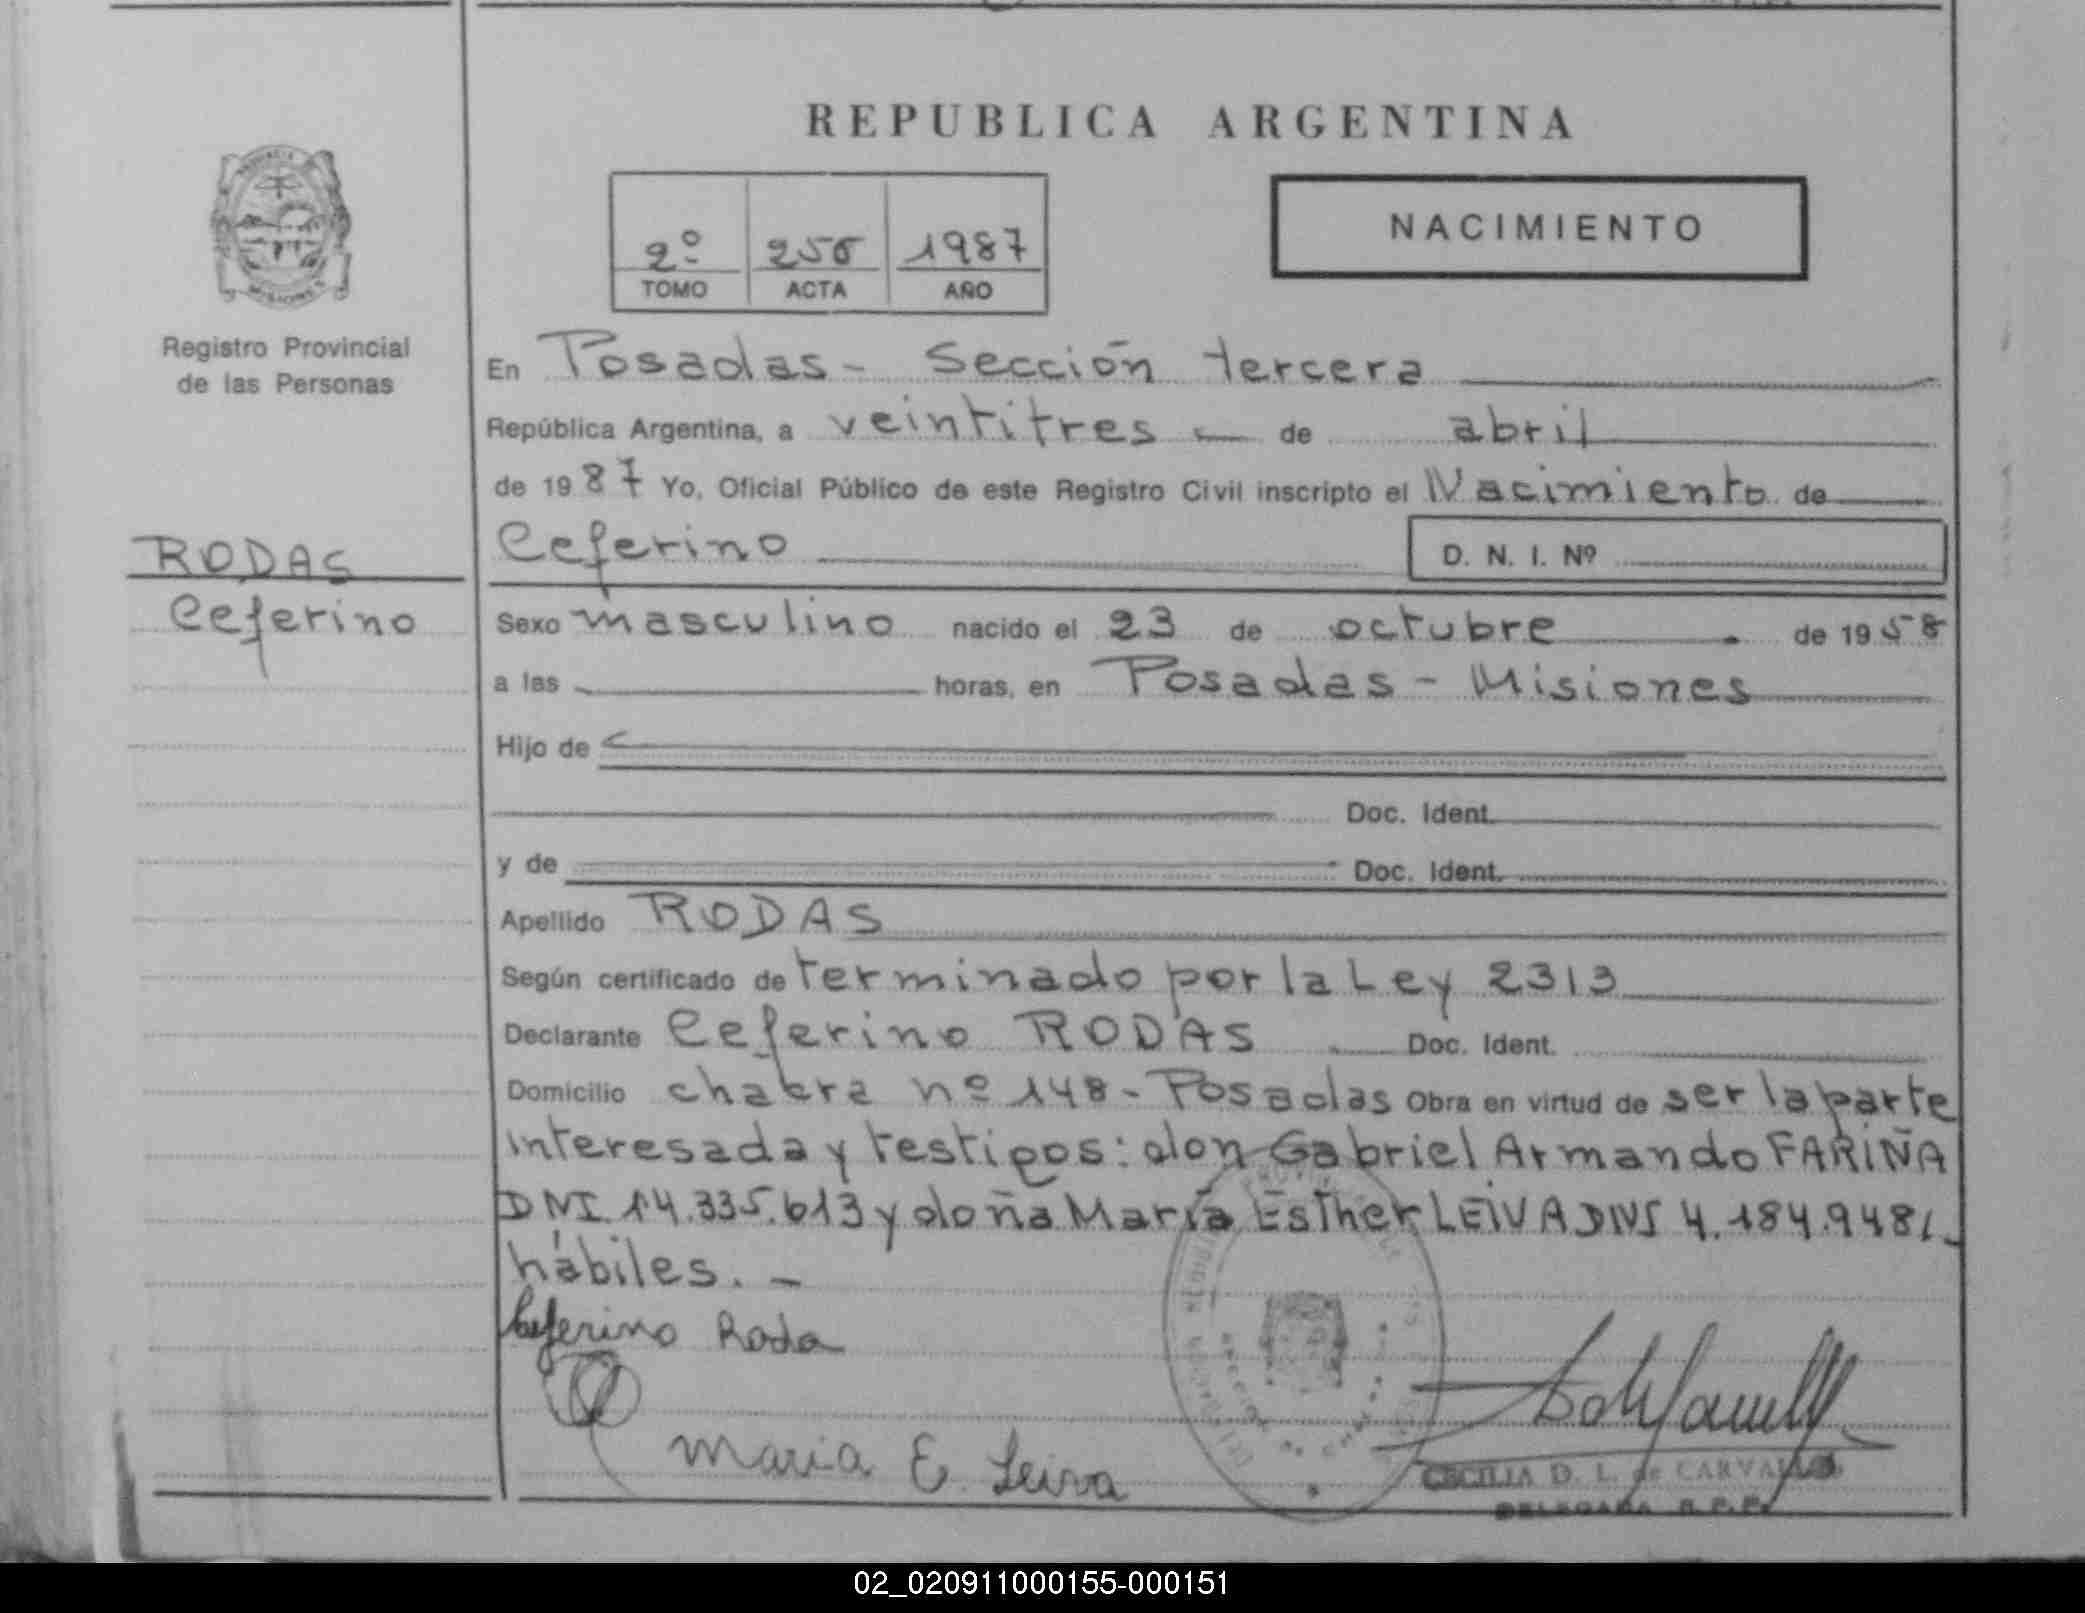 REPUBLICA ARGENTINA
2º 256 1987
TOMO ACTA AÑO
NACIMIENTO
Registro Provincial
de las Personas
RODAS
Ceferino
En Posadas - Sección tercera
República Argentina, a veintitres - de abril
de 1987 Yo, Oficial Público de este Registro Civil inscripto el Nacimiento de
Ceferino D. N. I. Nº
Sexo masculino nacido el 23 de octubre de 1958
a las horas, en Posadas - Misiones
Hijo de
Doc. Ident.
y de Doc. Ident.
Apellido RODAS
Según certificado de terminado por la Ley 2313
Declarante Ceferino RODAS Doc. Ident.
Domicilio chacra nº 148 - Posadas Obra en virtud de ser la parte
interesada y testigos: don Gabriel Armando FARIÑA
DNI. 14.335.613 y doña María Esther LEIVA DNI 4.184.948,
hábiles. -
Ceferino Roda
Maria E. Leiva
CECILIA D. L. de CARVALLO
DELEGADA R.P.P.
02_020911000155-000151